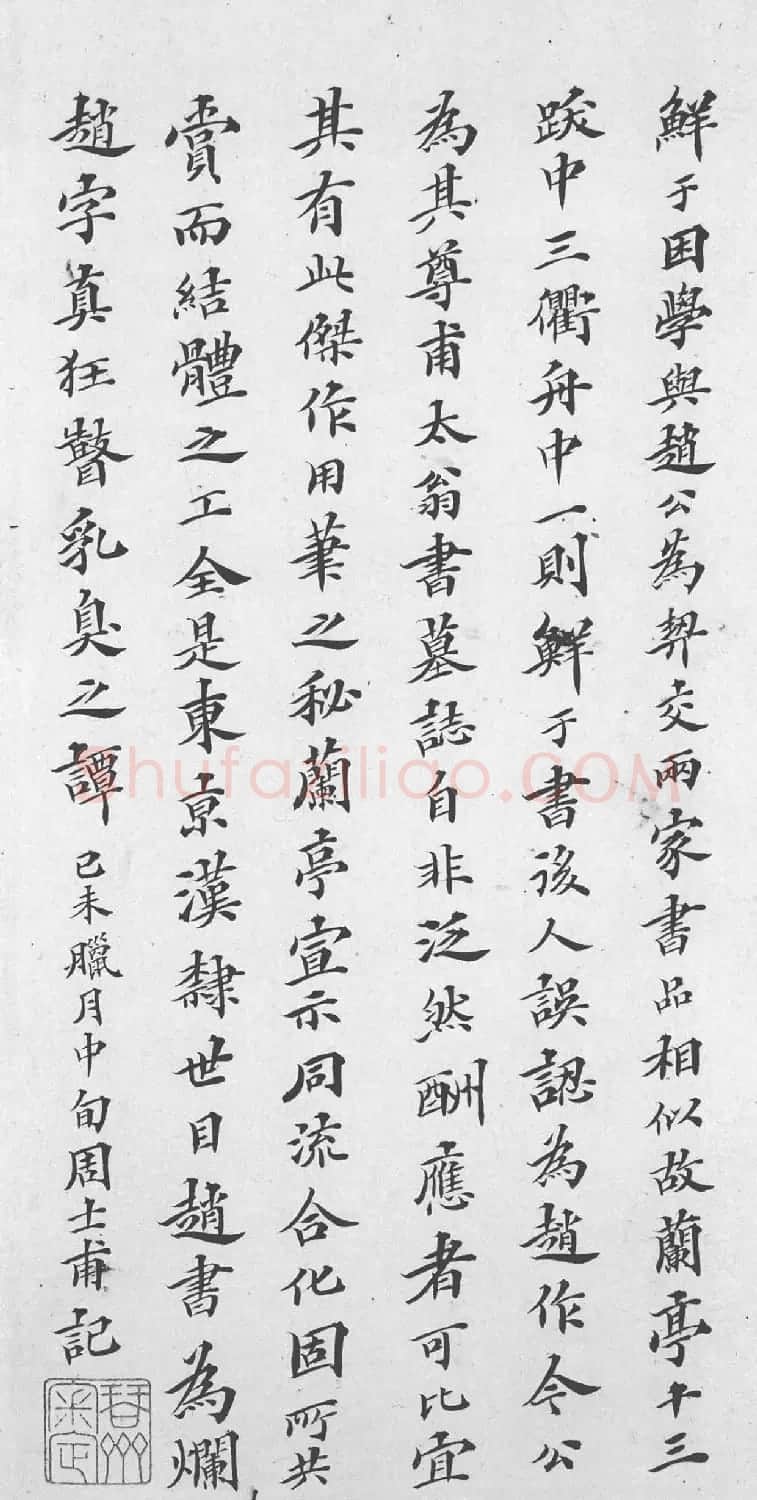 鮮于困學與趙公為契交兩家書品相似故蘭亭十三
跋中三衢舟中一則鮮于書後人誤認為趙作今公
為其尊甫太翁書墓誌自非泛然酬應者可比宜
其有此傑作用筆之秘蘭亭宣示同流合化固所共
賞而結體之工全是東京漢隸世目趙書為爛
趙字真狂瞽乳臭之譚
己未臘月中旬周士甫記
Shufaziliao.COM